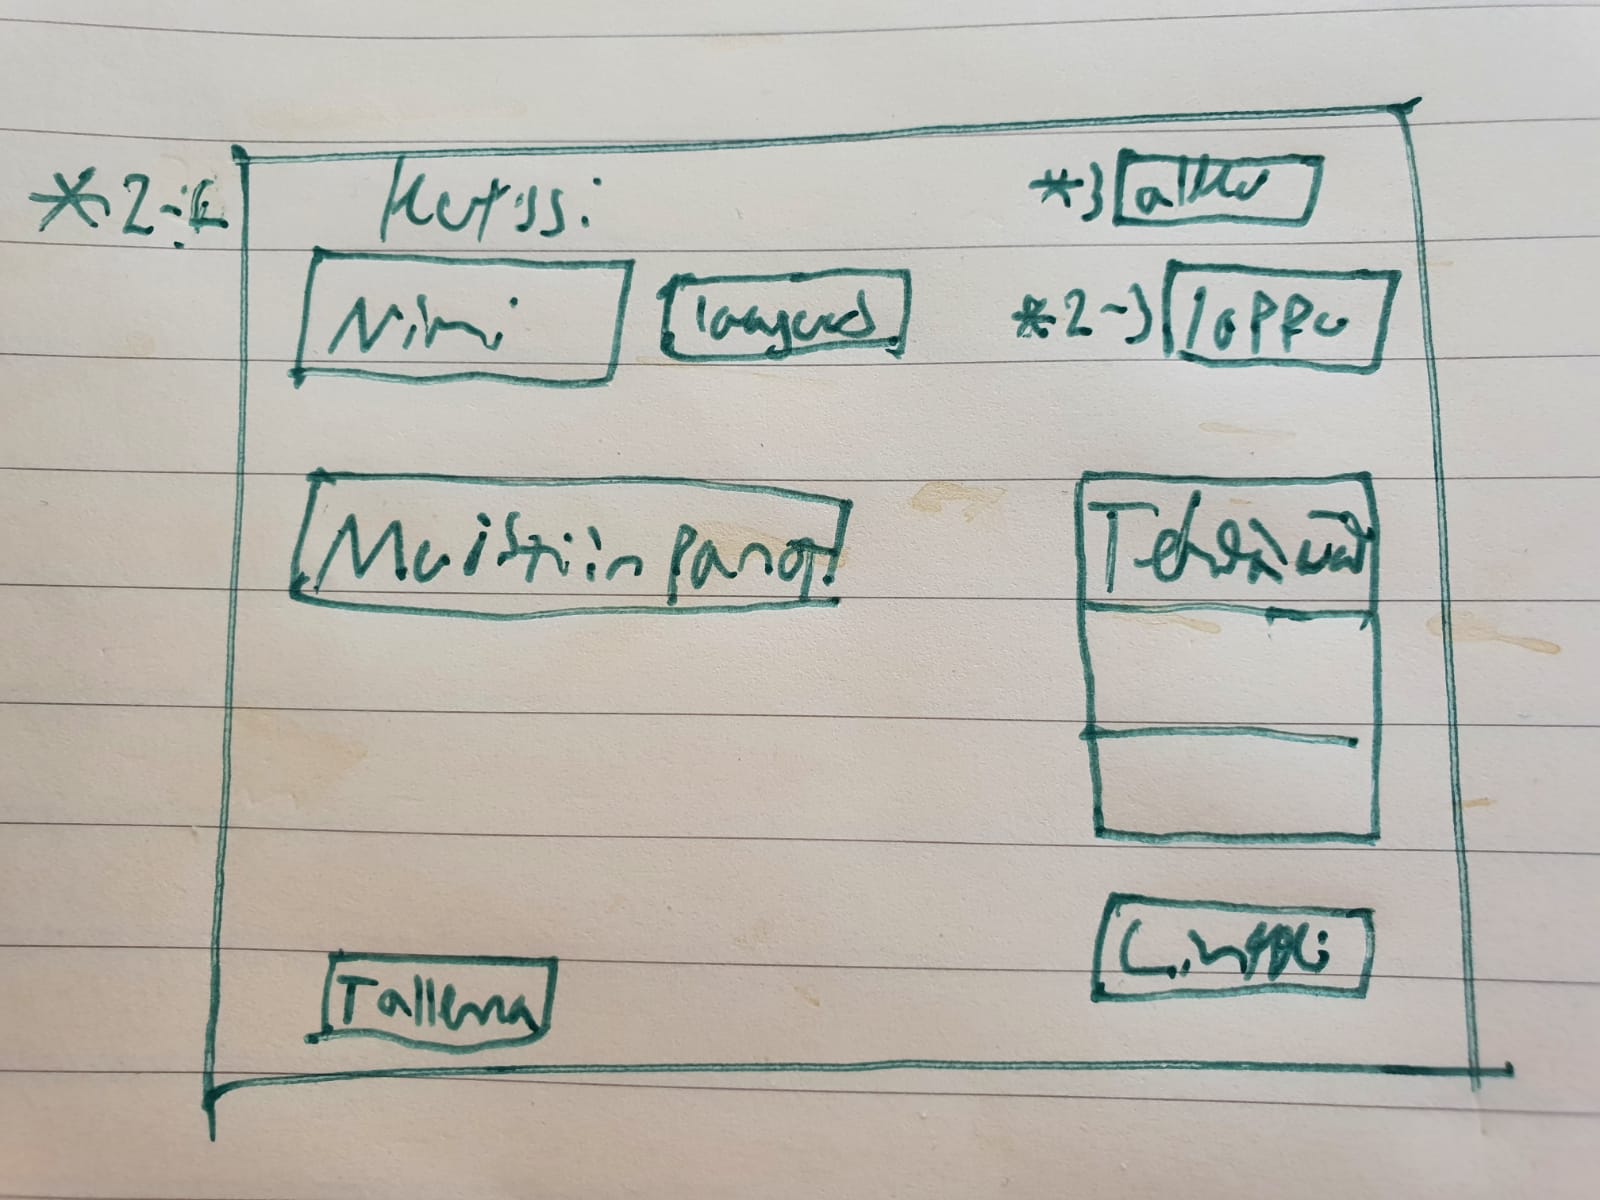 Kurssi:
alku
Nimi
laajuus
loppu
Muistiinpanot
Tehtävät
Linkki
Tallenna